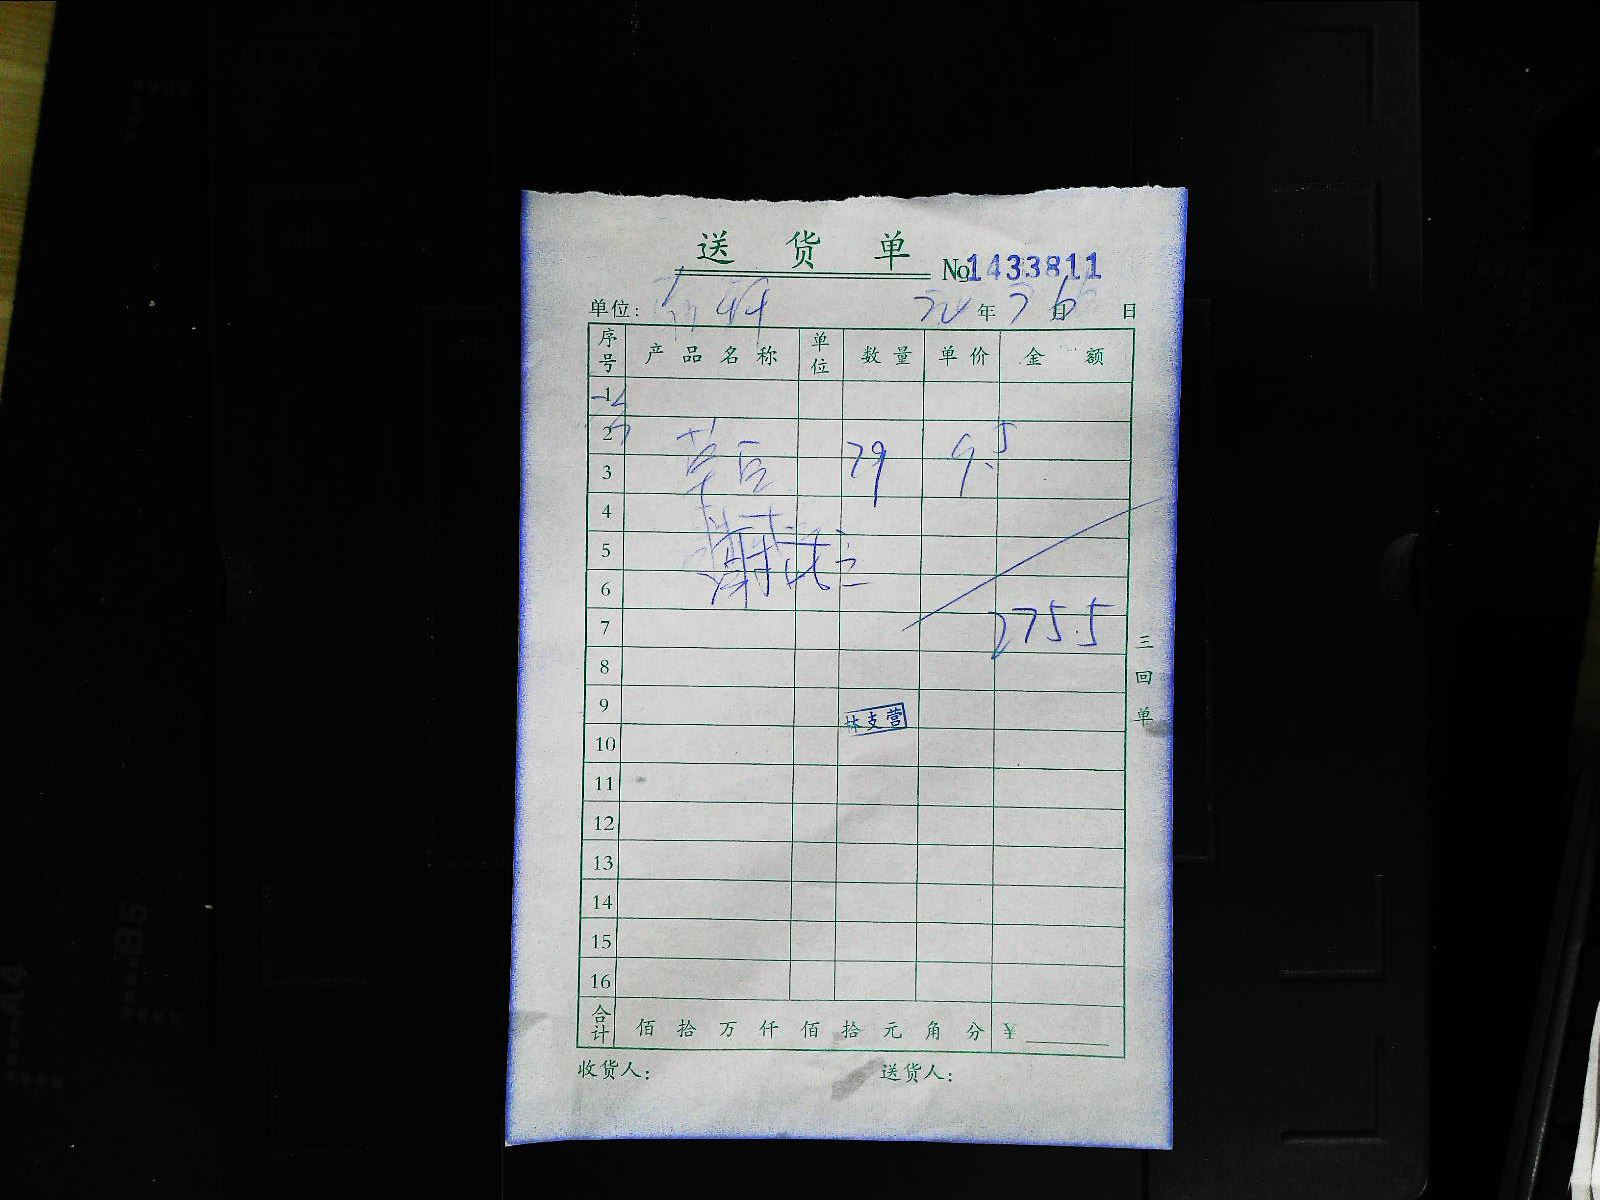 送货单 №1433811
单位: 年 月 日
序号 产品名称 单位 数量 单价 金额
1
2
草豆 29 9.5
3
4
5
6
275.5
7
三回单
8
9
林支营
10
11
12
13
14
15
16
合计 佰拾万仟佰拾元角分 ¥
收货人: 送货人:
A4
B5